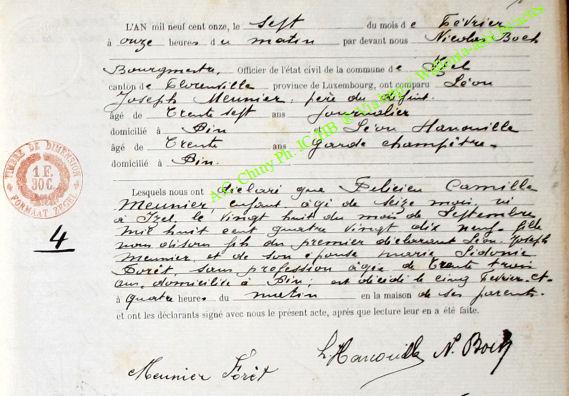 L'AN mil neuf cent onze, le sept du mois de Février
à onze heures du matin par devant nous Nicolas Boch
Bourgmestre Officier de l'état civil de la commune de Izel
canton de Florenville, province de Luxembourg, ont comparu Léon
Joseph Meunier, père du défunt
âgé de trente sept ans journalier
domicilié à Pin Léon Hanouille
âgé de trente ans Garde champêtre
domicilié à Pin.
Lesquels nous ont déclaré que Félicien Camille
Meunier, enfant âgé de seize mois, né
à Izel le vingt huit du mois de Septembre
mil huit cent quatre vingt dix neuf, fille
nous disons fils du premier déclarant Léon Joseph
Meunier et de son épouse Marie Sidonie
Forêt, sans profession âgée de trente trois
ans domiciliée à Pin; est décédé le cinq Février et
à quatre heures du matin en la maison de ses parents.
et ont les déclarants signé avec nous le présent acte, après que lecture leur en a été faite.
TIMBRE DE DIMENSION
1 F.
30 C.
FORMAAT ZEGEL
4
Meunier Forêt L Hanouille N. Boch